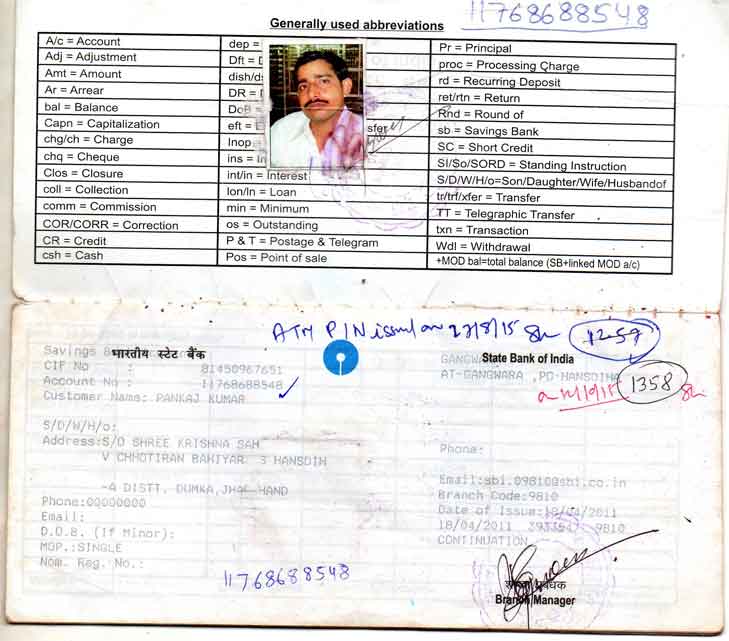 11768688548
Generally used abbreviations
A/c = Account
Adj = Adjustment
Amt = Amount
Ar = Arrear
bal = Balance
Capn = Capitalization
chg/ch = Charge
chq = Cheque
Clos = Closure
coll = Collection
comm = Commission
COR/CORR = Correction
CR = Credit
csh = Cash
dep =
Dft =
dish/ds
DR =
DoB =
eft = sfer
Inop
ins =
int/in = Interest
lon/ln = Loan
min = Minimum
os = Outstanding
P & T = Postage & Telegram
Pos = Point of sale
Pr = Principal
proc = Processing Charge
rd = Recurring Deposit
ret/rtn = Return
Rnd = Round of
sb = Savings Bank
SC = Short Credit
SI/So/SORD = Standing Instruction
S/D/W/H/o=Son/Daughter/Wife/Husbandof
tr/trf/xfer = Transfer
TT = Telegraphic Transfer
txn = Transaction
Wdl = Withdrawal
+MOD bal=total balance (SB+linked MOD a/c)
ATM PIN issued on 27/8/15
Savings भारतीय स्टेट बैंक
State Bank of India
CIF No : 81450967651
AT-GANGWARA ,PO-HANSDIHA
Account No : 11768688548
1358
Customer Name: PANKAJ KUMAR
S/D/W/H/o:
Address:S/O SHREE KRISHNA SAH
V CHHOTIRAN BAHIYAR S HANSDIH
-A DISTT, DUMKA,JHA HAND
Phone:00000000
Email:
D.O.B. (If Minor):
MOP.:SINGLE
Nom. Reg. No.:
11768688548
Phone:
Email:sbi.09810@sbi.co.in
Branch Code:9810
Date of Issue:18/04/2011
18/04/2011 9810
CONTINUATION
Branch Manager